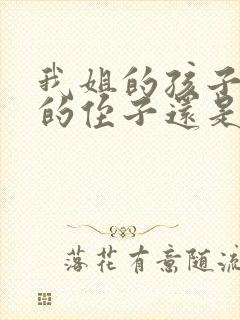 我姐的孩子
的侄子還是
落花有意随流